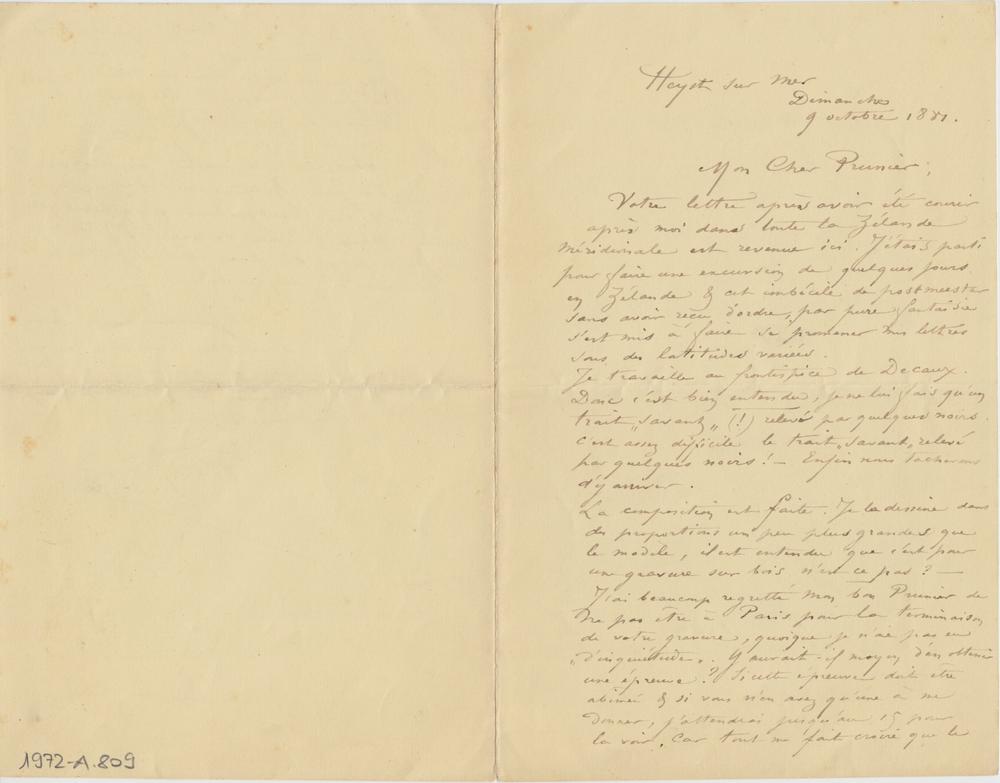 Heyst sur Mer
Dimanche
9 octobre 1881.
Mon Cher Prunier;
Votre lettre après avoir été courir
après moi dans toute la Zélande
méridionale est revenue ici. J'étais parti
pour faire une excursion de quelques jours
en Zélande & cet imbécile de postmeester
sans avoir reçu d'ordre, par pure fantaisie
s'est mis à faire se promener mes lettres
sous des latitudes variées.
Je travaille au frontispice de Decaux.
Donc c'est bien entendu, je ne lui fais qu'un
trait „savant„ (!) relevé par quelques noirs.
c'est assez difficile le trait „savant„ relevé
par quelques noirs! – Enfin nous tacherons
d'y arriver.
La composition est faite. Je la dessine dans
des proportions un peu plus grandes que
le modèle, il est entendu que c'est pour
une gravure sur bois n'est ce pas? —
J'ai beaucoup regretté mon bon Prunier de
ne pas être à Paris pour la terminaison
de votre gravure, quoique je n'aie pas eu
„d'inquiétude„. Y aurait-il moyen d'en obtenir
une épreuve? Si cette épreuve doit être
abimée & si vous n'en avez qu'une à me
donner, j'attendrai jusqu'au 15 pour
la voir. Car tout me fait croire que le
1972-A.809